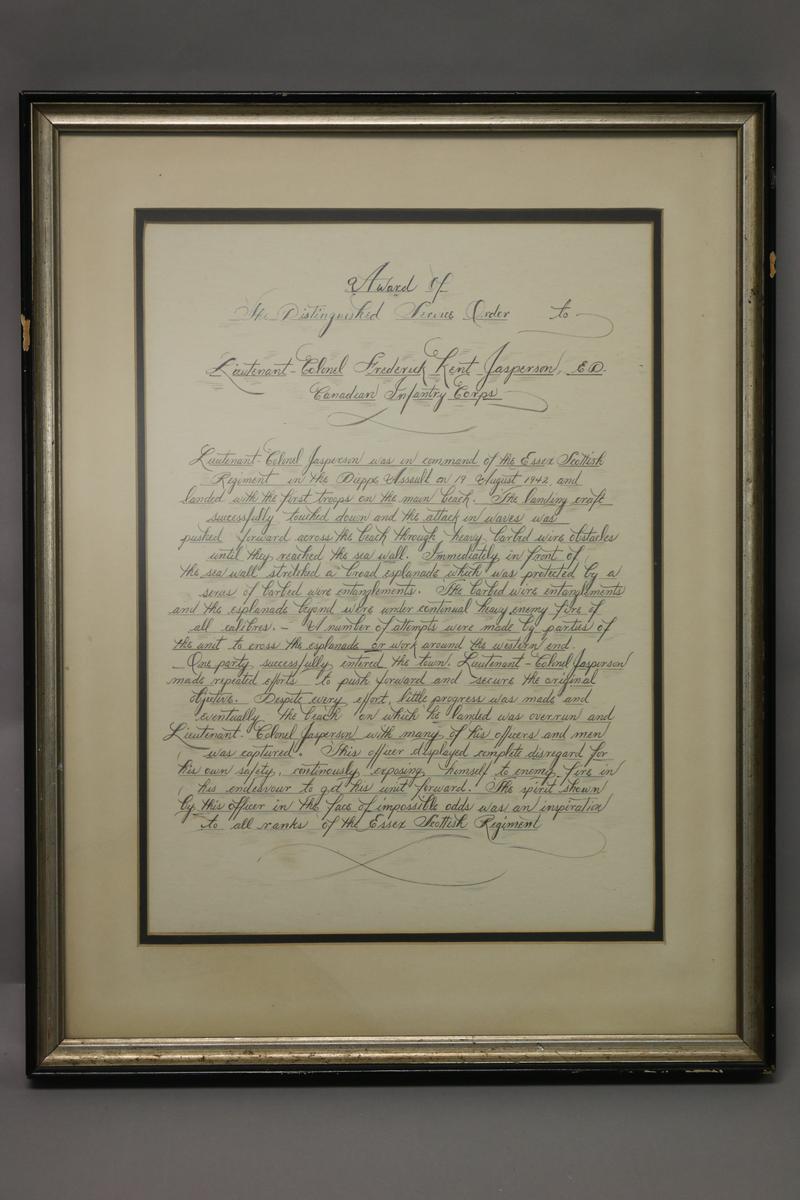 Award of
The Distinguished Service Order to
Lieutenant-Colonel Frederick Kent Jasperson, E.D.
Canadian Infantry Corps
Lieutenant-Colonel Jasperson was in command of the Essex Scottish
Regiment in the Dieppe Assault on 19 August 1942, and
landed with the first troops on the main beach. The landing craft
successfully touched down and the attack in waves was
pushed forward across the beach through heavy barbed wire obstacles
until they reached the sea wall. Immediately in front of
the sea wall stretched a broad esplanade which was protected by a
series of barbed wire entanglements. The barbed wire entanglements
and the esplanade beyond were under continual heavy enemy fire of
all calibres. — A number of attempts were made by parties of
the unit to cross the esplanade or work around the western end.
— One party successfully entered the town. Lieutenant-Colonel Jasperson
made repeated efforts to push forward and secure the original
objective. Despite every effort, little progress was made and
eventually the beach on which he landed was overrun and
Lieutenant-Colonel Jasperson with many of his officers and men
was captured. This officer displayed complete disregard for
his own safety, continously exposing himself to enemy fire in
his endeavour to get his unit forward. The spirit shown
by this officer in the face of impossible odds was an inspiration
to all ranks of the Essex Scottish Regiment